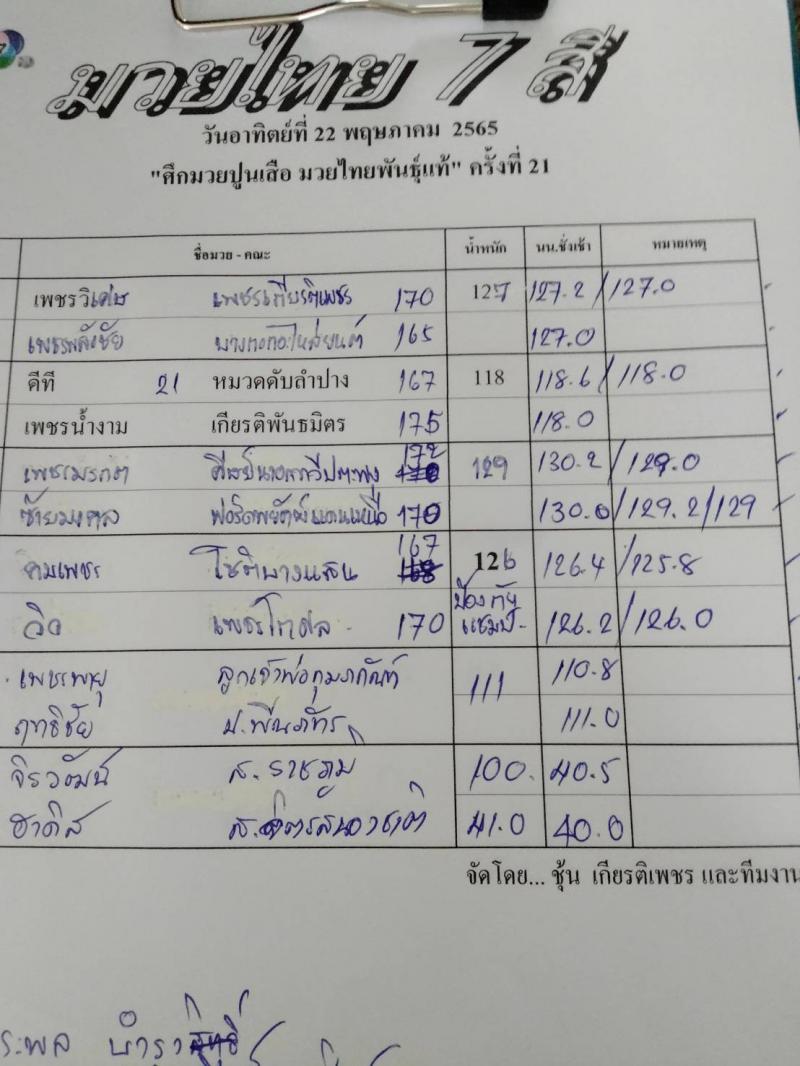 มวยไทย 7 สี
วันอาทิตย์ที่ 22 พฤษภาคม 2565
"ศึกมวยปูนเสือ มวยไทยพันธุ์แท้" ครั้งที่ 21
ชื่อมวย - คณะ น้ำหนัก นน.ชั่งเช้า หมายเหตุ
เพชรวิเศษ เพชรเกียรติเพชร 170 127 127.2 / 127.0
165 127.0
ดีที 21 หมวดดับลำปาง 167 118 118.6 / 118.0
เพชรน้ำงาม เกียรติพันธมิตร 175 118.0
เพชรมรกต 172 129 130.2 / 129.0
ซ้ายมงคล 170 130.0 / 129.2 / 129
คมเพชร โชติบางแสน 167 126 126.4 / 125.8
วิว เพชรโกศล 170 ป้องกันแชมป์ 126.2 / 126.0
เพชรพายุ ลูกเจ้าพ่อกุมภกัณฑ์ 111 110.8
ฤทธิชัย 111.0
จิรวัฒน์ ส.ราชภูมิ 100. 40.5
ฮาดิส 41.0 40.0
จัดโดย... ชุ้น เกียรติเพชร และทีมงาน